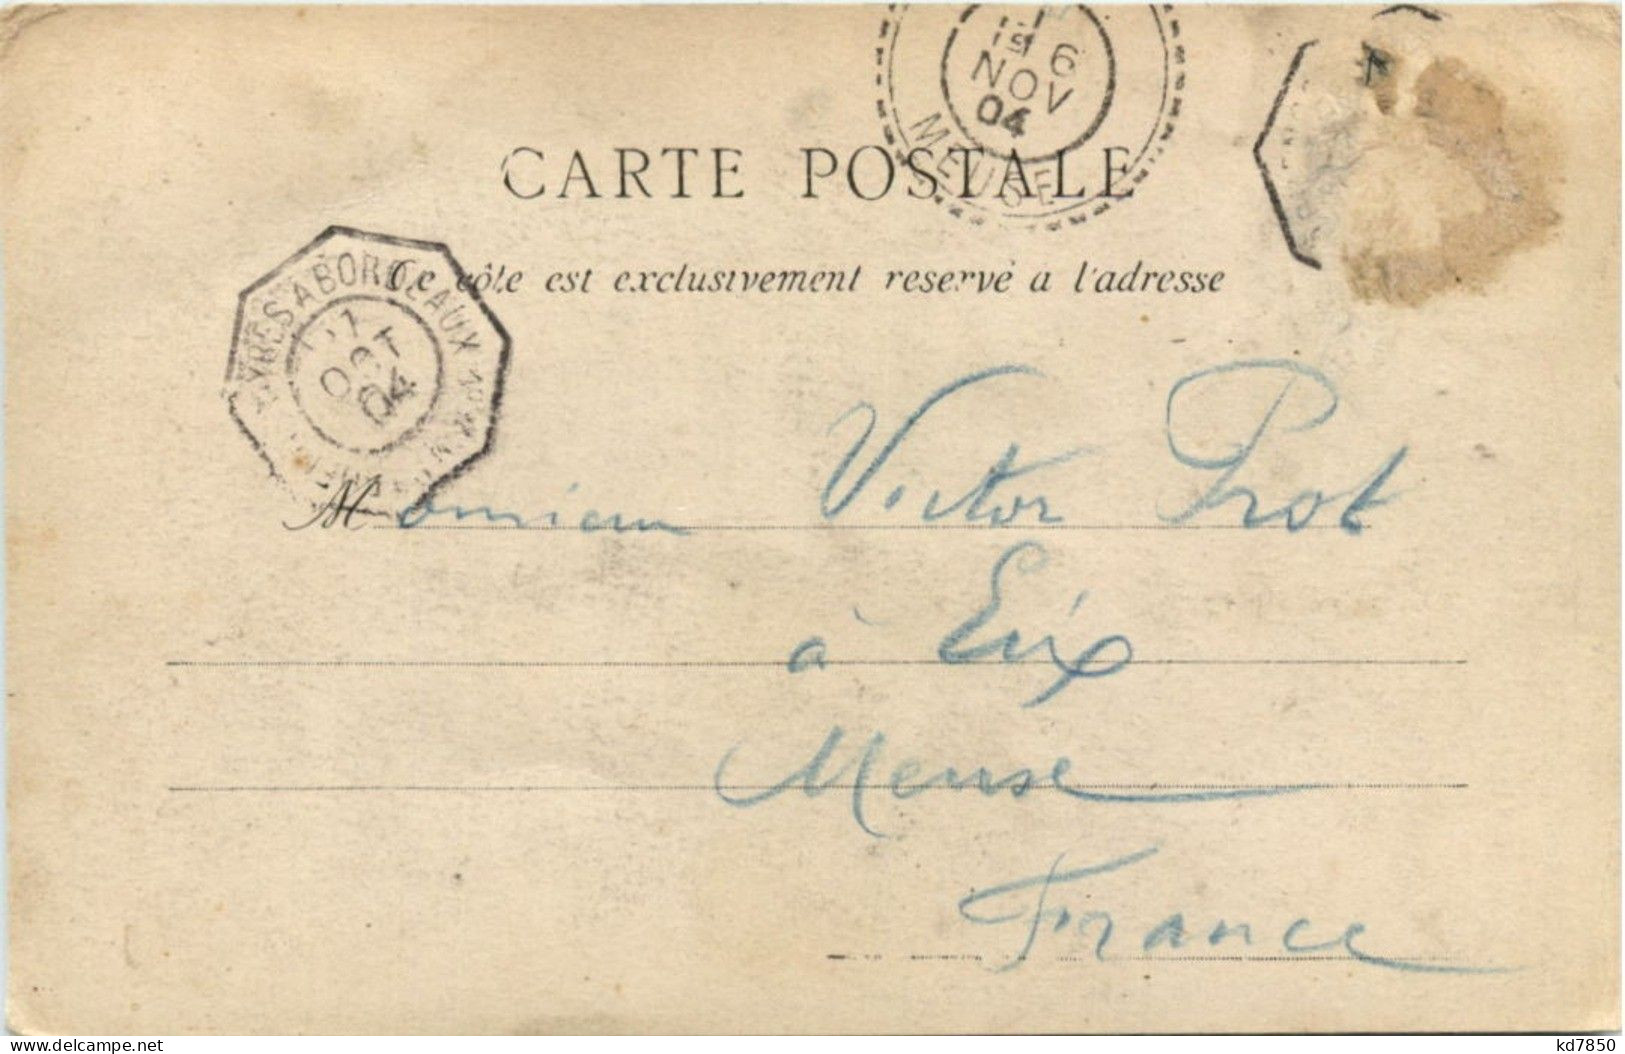 6
NOV
04
MEUSE
CARTE POSTALE
Ce côte est exclusivement reservé a l'adresse
AYRES A BORDEAUX
OCT
04
Monsieur Victor Prot
à Eix
Meuse
France
www.delcampe.net
kd7850